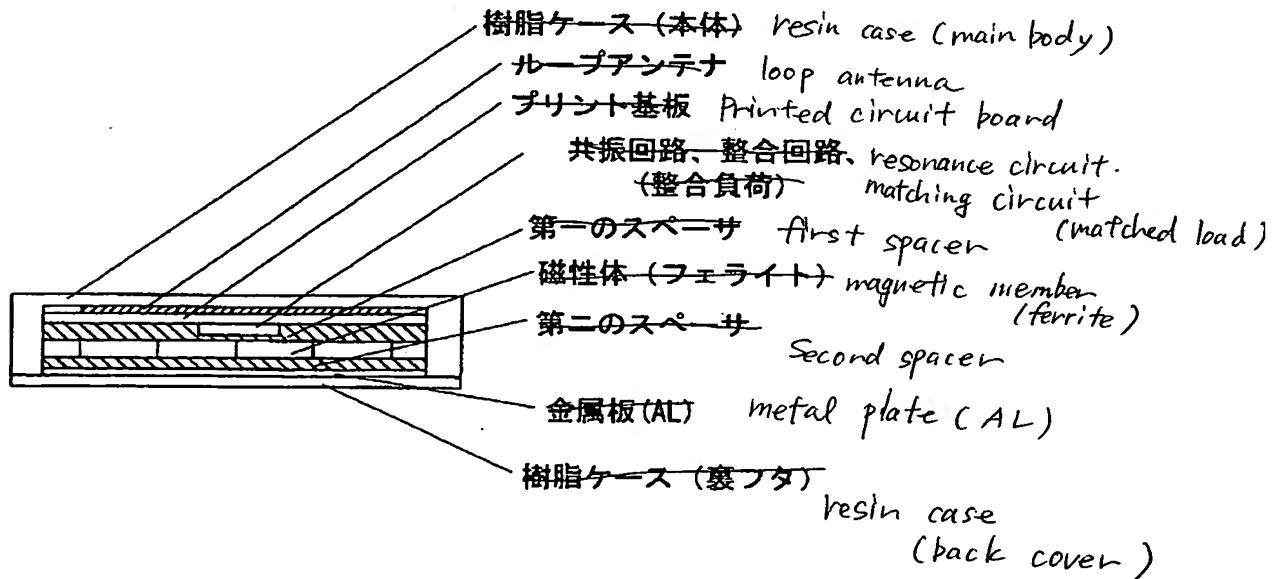 樹脂ケース (本体) resin case (main body)
ループアンテナ loop antenna
プリント基板 Printed circuit board
共振回路、整合回路、 resonance circuit.
(整合負荷) matching circuit
(matched load)
第一のスペーサ first spacer
磁性体 (フェライト) magnetic member
(ferrite)
第二のスペーサ
Second spacer
金属板(AL) metal plate (AL)
樹脂ケース (裏フタ)
resin case
(back cover)